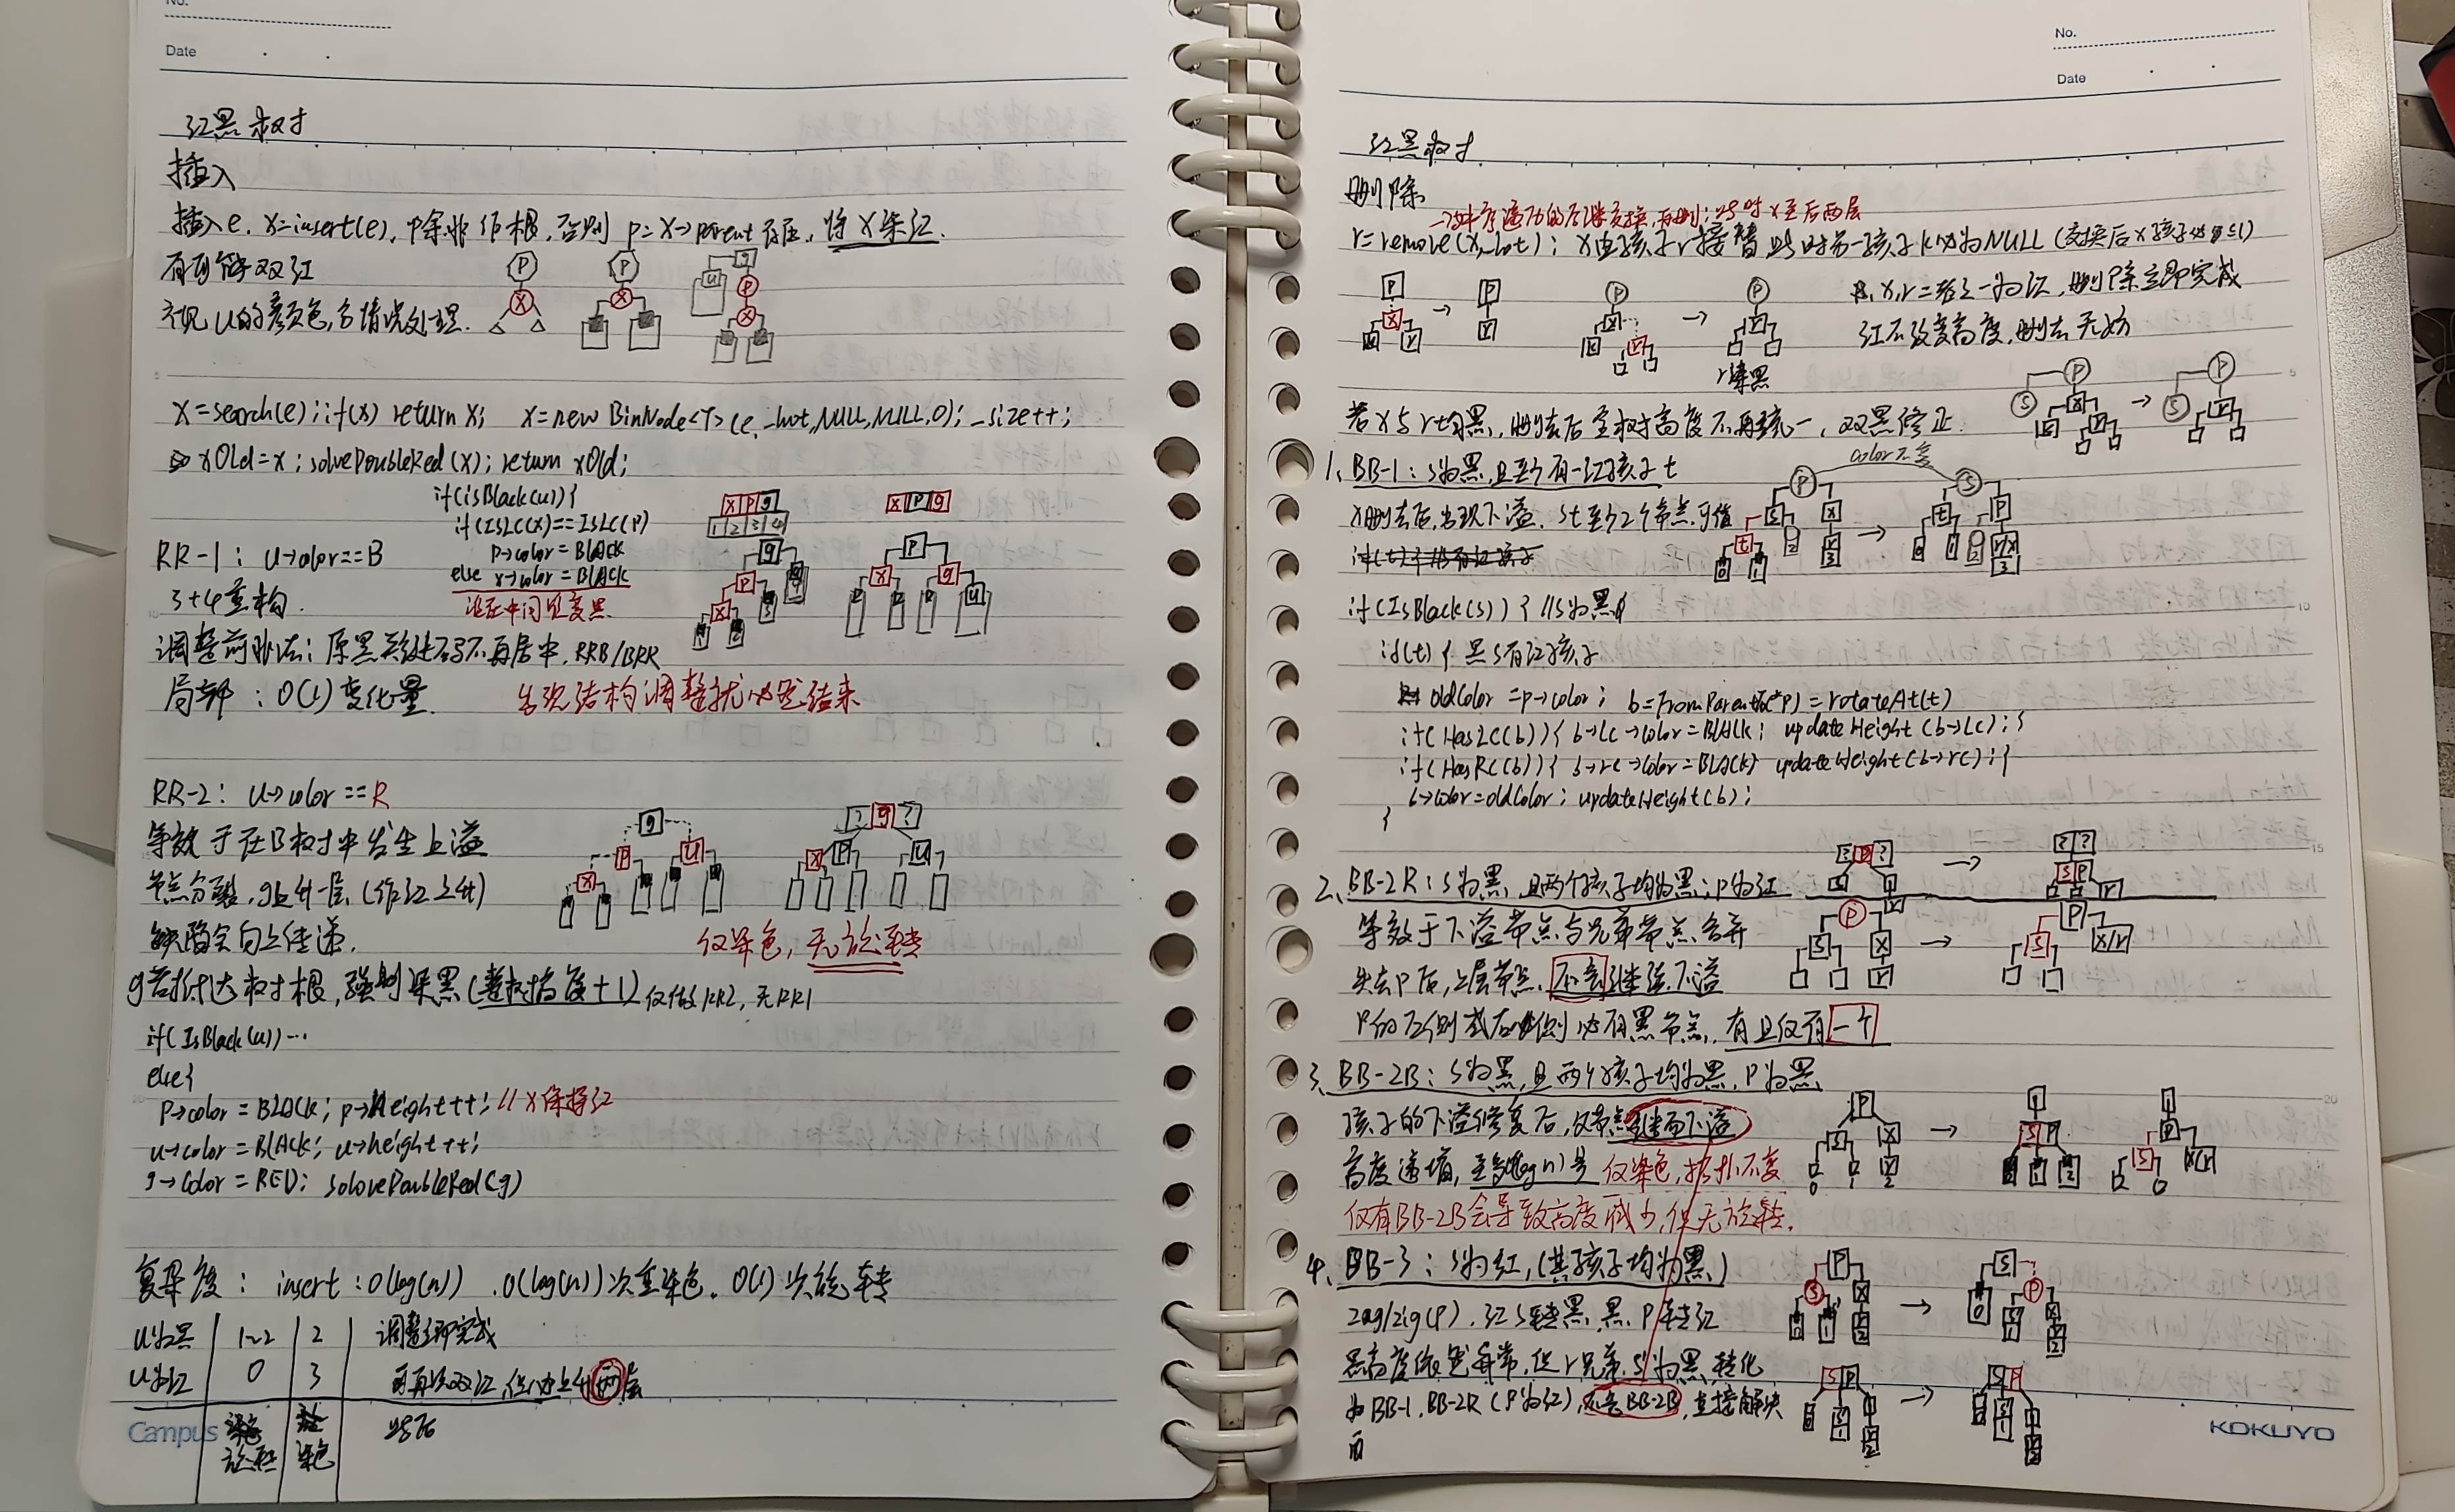 No.
Date
红黑树
插入
插入e. x=insert(e), 除非作根, 否则 p=x->parent存在, 将x染红.
有可能双红
视u的颜色, 分情况处理.
x=search(e); if(x) return x; x=new BinNode<T>(e,_hot,NULL,NULL,0); _size++;
xOld=x; solveDoubleRed(x); return xOld;
if(isBlack(u)){
if(IsLC(x)==IsLC(p)
p->color=BLACK
else x->color=BLACK
谁在中间谁变黑
RR-1: u->color==B
3+4重构.
调整前非法: 原黑关键码不再居中, RRB/BRR
局部: O(1)变化量. 出现结构调整就必定结束
RR-2: u->color==R
等效于在B树中发生上溢
节点分裂, g上升一层 (作红上升)
缺陷会向上传递.
仅染色, 无旋转
g若抵达树根, 强制染黑 (整树高度+1) 仅做RR2, 无RR1
if(IsBlack(u))...
else{
p->color=BLACK; p->height++; //x保持红
u->color=BLACK; u->height++;
g->color=RED; soloveDoubleRed(g)
复杂度: insert: O(log(n)). O(log(n))次重染色. O(1)次旋转
u为黑 1~2 2 调整立即完成
u为红 0 3 可再次双红, 但必上升两层
旋转 染色 此后
Campus
No.
Date
红黑树
删除
r=remove(x,_hot); x由孩子r接替, 此时另一孩子k必为NULL (交换后x孩子必≤1)
x,r二者之一为红, 删除立即完成
红不改变高度, 删去无妨
r染黑
若x与r均黑, 删去后全树高度不再统一, 双黑修正.
1. BB-1: s为黑, 且至少有一红孩子t
color不变
x删去后, 出现下溢. st至少2个节点, 可借
if(IsBlack(s)) { //s为黑
if(t){ 黑s有红孩子
oldColor=p->color; b=FromParentTo(*p)=rotateAt(t)
if(HasLC(b)){ b->lc->color=BLACK; updateHeight(b->lc); }
if(HasRC(b)){ b->rc->color=BLACK; updateHeight(b->rc); }
b->color=oldColor; updateHeight(b);
}
2. BB-2R: s为黑, 且两个孩子均为黑; p为红
等效于下溢节点与兄弟节点合并
失去p后, 上层节点, 不会继续下溢
p的左侧或右侧必有黑节点, 有且仅有一个
3. BB-2B: s为黑, 且两个孩子均为黑, p为黑
孩子的下溢修复后, 父节点继而下溢
高度递增, 至多O(logn)步 仅染色, 拓扑不变
仅有BB-2B会导致高度减少, 但无旋转.
4. BB-3: s为红, (其孩子均为黑)
zag/zig(p). 红s转黑, 黑p转红
黑高度依然异常, 但r兄弟s'为黑, 转化
为BB-1, BB-2R (p为红), 不会BB-2B, 直接解决
KOKUYO